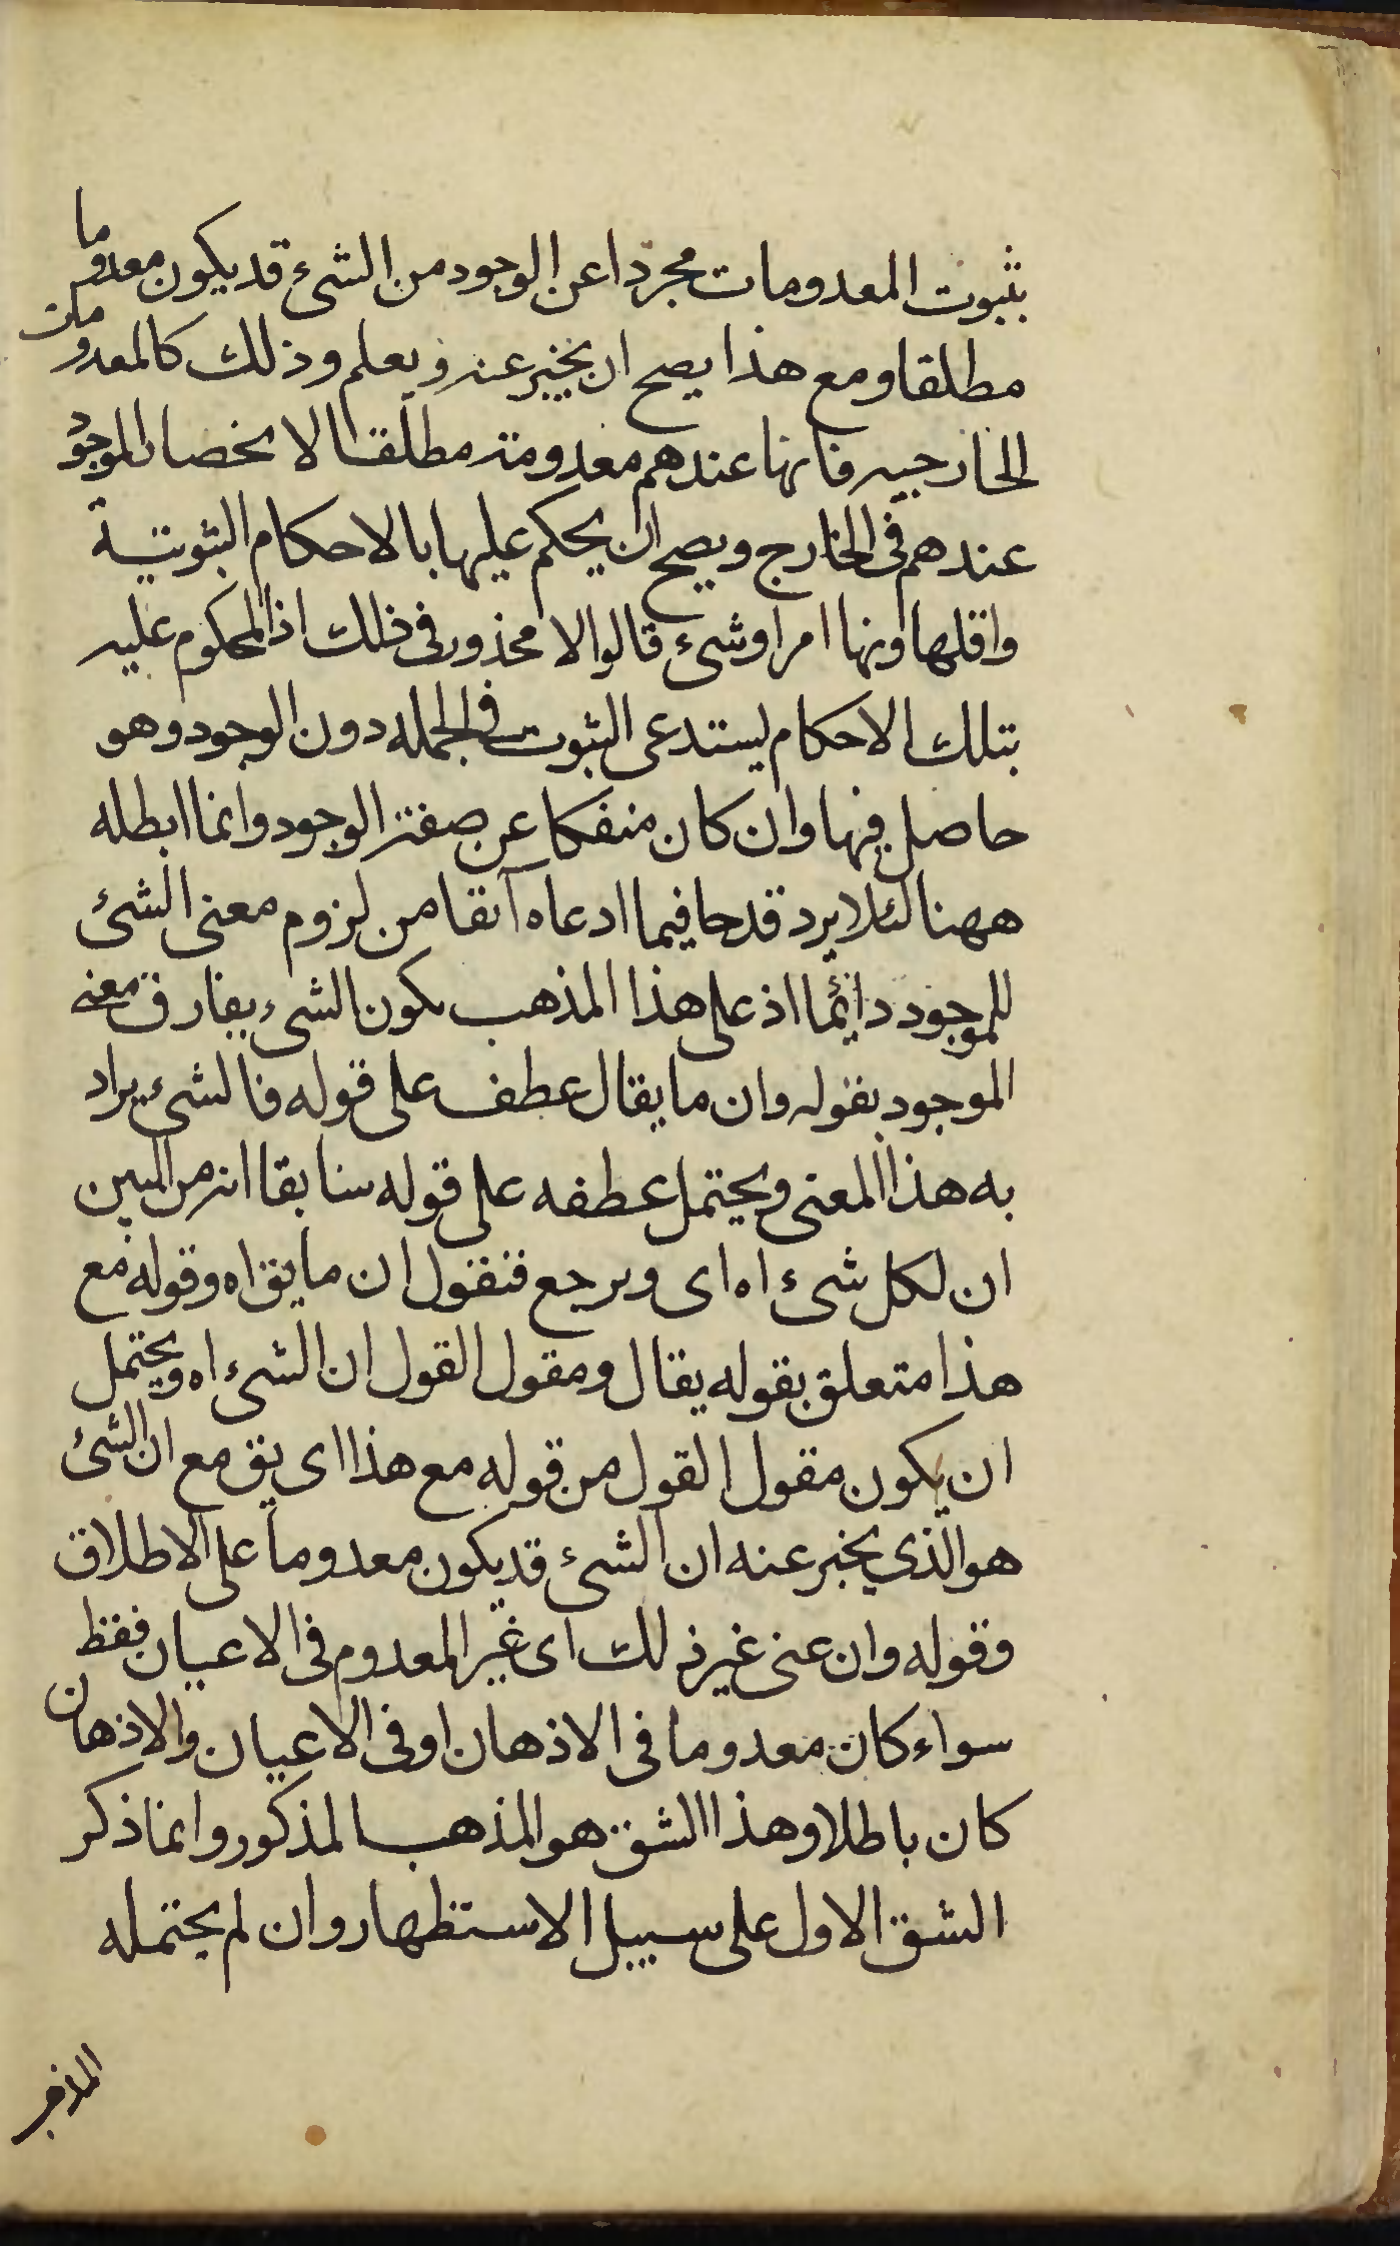 بثبوت المعدومات مجردا عن الوجود من الشیء قد یکون معدوما
مطلقا ومع هذا یصح ان یخبر عنه ویعلم وذلك کالمعدومات
الخارجیه فانها عندهم معدومة مطلقا لانحصار الموجود
عندهم فی الخارج ویصح ان یحکم علیها بالاحکام الثبوتیة
واقلها انها امر او شیء قالوا لا محذور فی ذلك اذ المحکوم علیه
بتلك الاحکام یستدعی الثبوت فی الجمله دون الوجود وهو
حاصل فیها وان کان منفکا عن صفة الوجود وانما ابطله
ههنا لئلا یرد قدحا فیما ادعاه آنفا من لزوم معنی الشیء
للموجود دائما اذ علی هذا المذهب یکون الشیء یفارق معنی
الموجود بقوله وان ما یقال عطف علی قوله فالشیء یراد
به هذا المعنی ویحتمل عطفه علی قوله سابقا انه من البین
ان لکل شیء اه ای ونرجع فنقول ان ما یق اه وقوله مع
هذا متعلق بقوله یقال ومقول القول ان الشیء اه ویحتمل
ان یکون مقول القول من قوله مع هذا ای یق مع ان الشیء
هو الذی یخبر عنه ان الشیء قد یکون معدوما علی الاطلاق
وقوله وان عنی غیر ذلك ای غیر المعدوم فی الاعیان فقط
سواء کان معدوما فی الاذهان او فی الاعیان والاذهان
کان باطلا وهذا الشق هو المذهب المذکور وانما ذکر
الشق الاول علی سبیل الاستظهار وان لم یحتمله